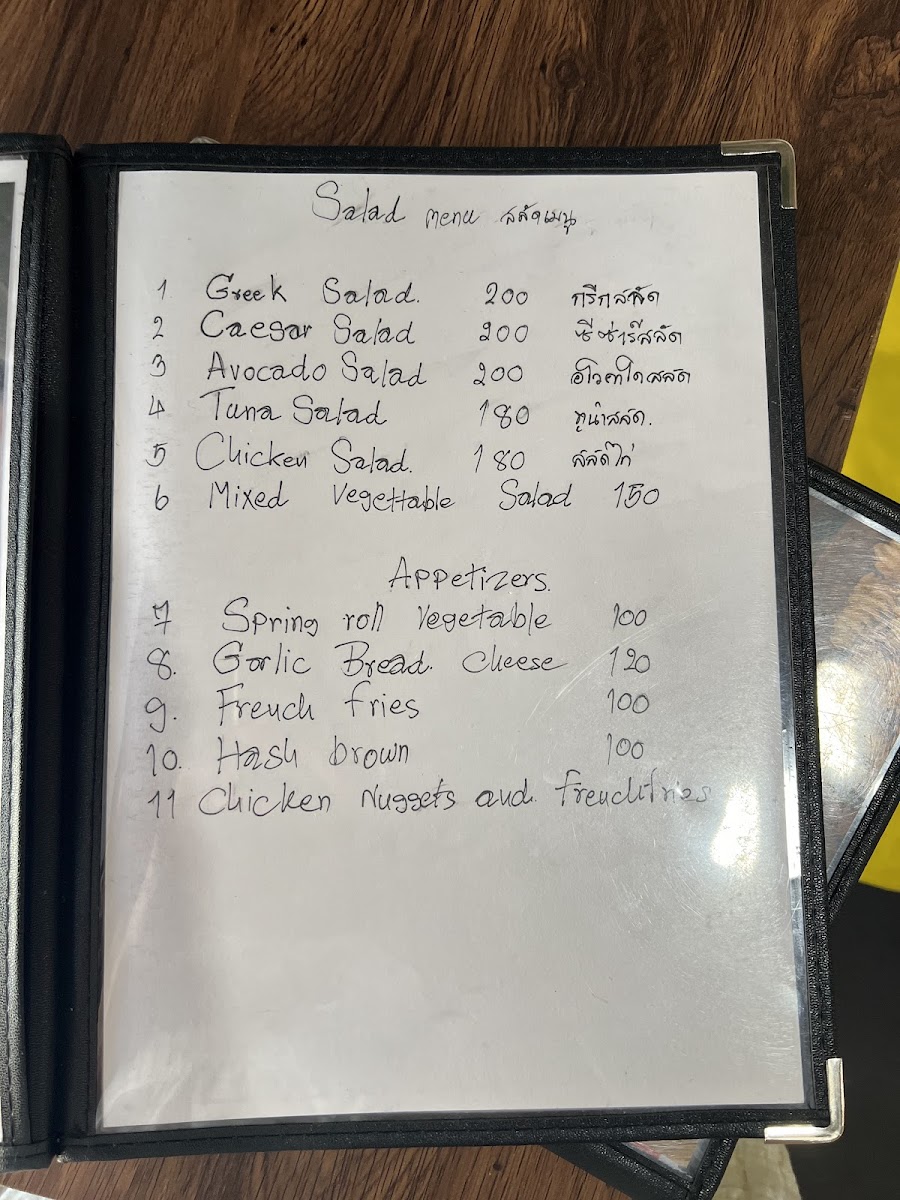 Salad menu สลัดเมนู
1 Greek Salad. 200 กรีกสลัด
2 Caesar Salad 200 ซีซ่าร์สลัด
3 Avocado Salad 200 อโวคาโดสลัด
4 Tuna Salad 180 ทูน่าสลัด.
5 Chicken Salad. 180 สลัดไก่
6 Mixed Vegettable Salad 150
Appetizers.
7 Spring roll vegetable 100
8. Garlic Bread. cheese 120
9. French fries 100
10. Hash brown 100
11 Chicken Nuggets and. frenchfries